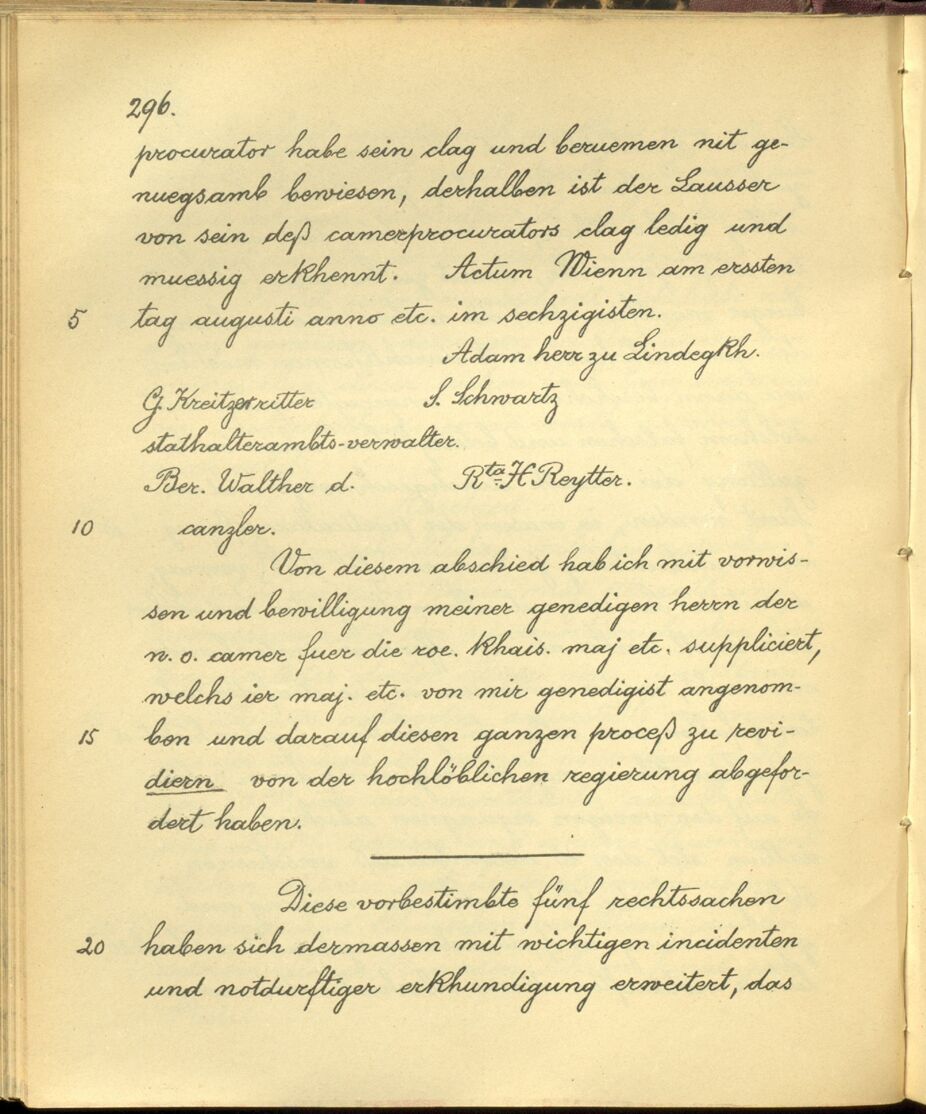 296.
procurator habe sein clag und beruemen nit ge-
nuegsamb bewiesen, derhalben ist der Lausser
von sein deß camerprocurators clag ledig und
muessig erkhennt. Actum Wienn am erssten
5 tag augusti anno etc. im sechzigisten.
Adam herr zu Lindegkh.
G. Kreitzerritter S. Schwartz
stathalterambts-verwalter.
Ber. Walther d. Rta H Reytter.
10 canzler.
Von diesem abschied hab ich mit vorwis-
sen und bewilligung meiner genedigen herrn der
n. o. camer fuer die roe. khais. maj etc. suppliciert,
welchs ier maj. etc. von mir genedigist angenom-
15 ben und darauf diesen ganzen proceß zu revi-
diern von der hochlöblichen regierung abgefor-
dert haben.
Diese vorbestimbte fünf rechtssachen
20 haben sich dermassen mit wichtigen incidenten
und notdurftiger erkhundigung erweitert, das